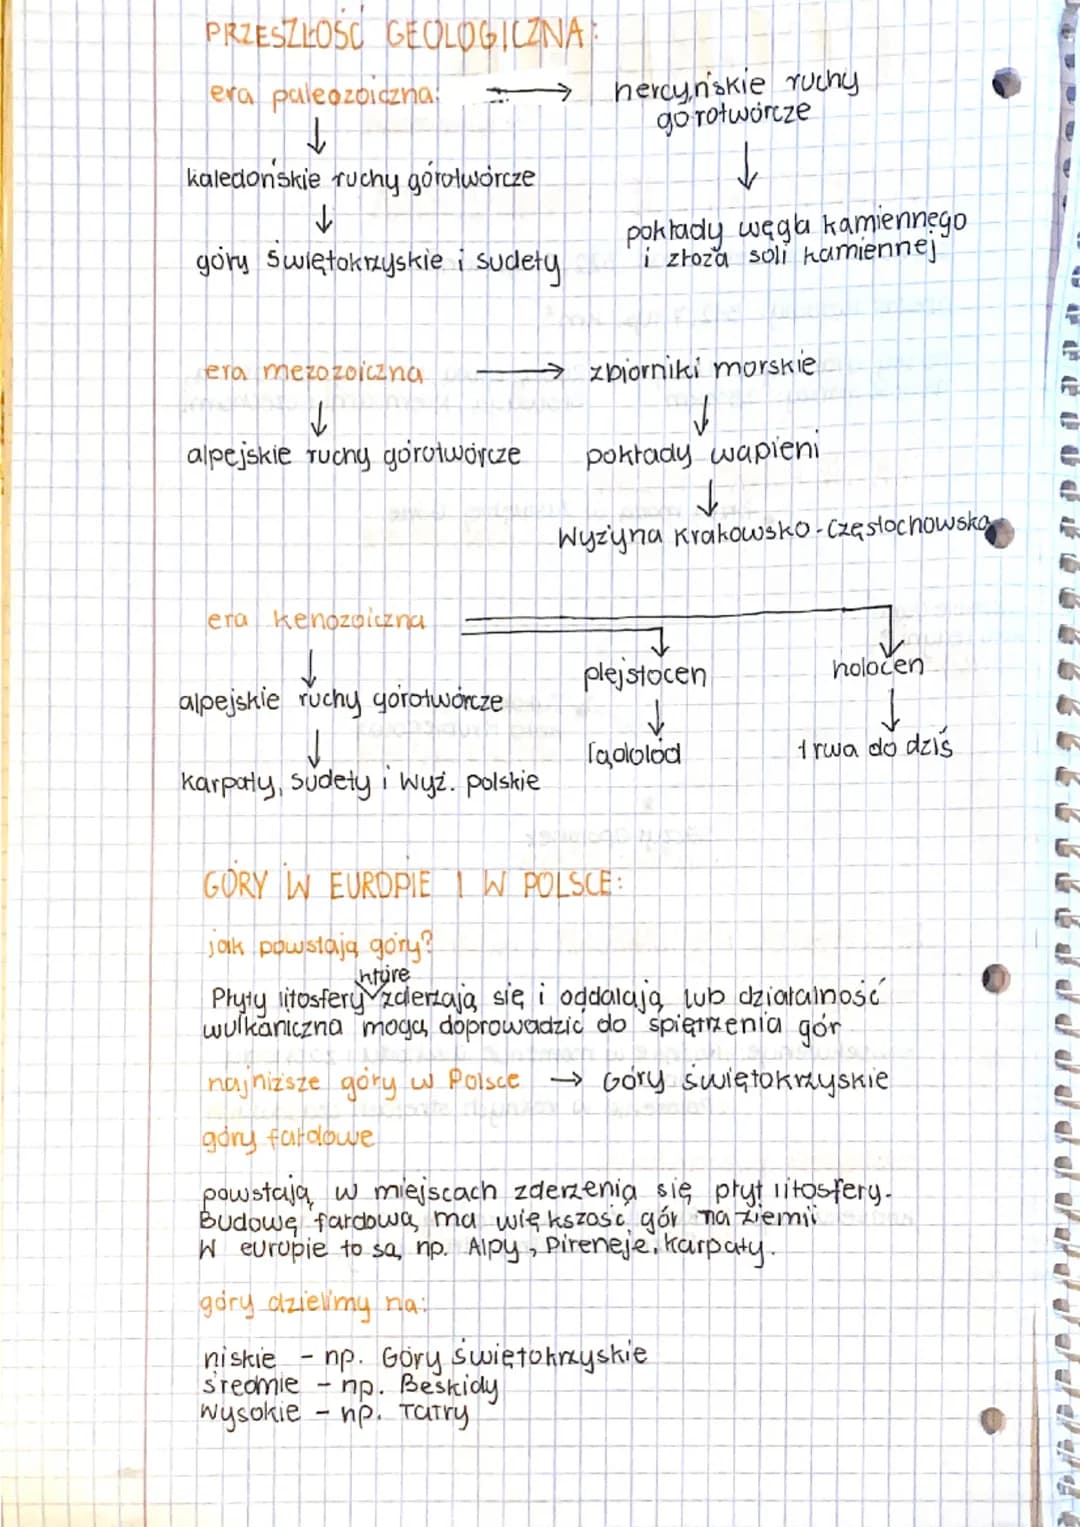 PRZESZŁOŚĆ GEOLOGICZNA:
era paleozoiczna: → hercyńskie ruchy
gorotwórcze
↓
kaledońskie ruchy górotwórcze
↓
pokłady węgla kamiennego
i złoża soli kamiennej
góry świętokrzyskie i sudety
era mezozoiczna → zbiorniki morskie
↓
alpejskie ruchy górotwórcze
pokłady wapieni
↓
Wyżyna Krakowsko-Częstochowska
era kenozoiczna
↓
plejstocen
holocen
alpejskie ruchy górotwórcze
↓
lądolód
trwa do dziś
karpaty, sudety i wyż. polskie
GÓRY W EUROPIE I W POLSCE:
jak powstają góry?
które
Płyty litosfery zderzają się i oddalają lub działalność
wulkaniczna mogą doprowadzić do spiętrzenia gór
najniższe góry w Polsce → Góry świętokrzyskie
góry fałdowe
powstają w miejscach zderzenia się płyt litosfery.
Budowę fałdową ma większość gór na ziemii
W europie to są np. Alpy, Pireneje, Karpaty.
góry dzielimy na:
niskie - np. Góry świętokrzyskie
średnie - np. Beskidy
wysokie - np. Tatry